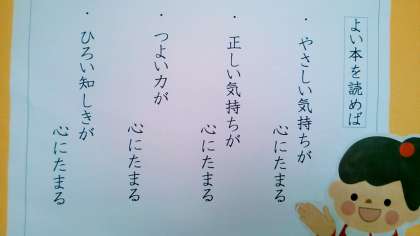 よい本を読めば
・やさしい気持ちが
心にたまる
・正しい気持ちが
心にたまる
・つよい力が
心にたまる
・ひろい知しきが
心にたまる